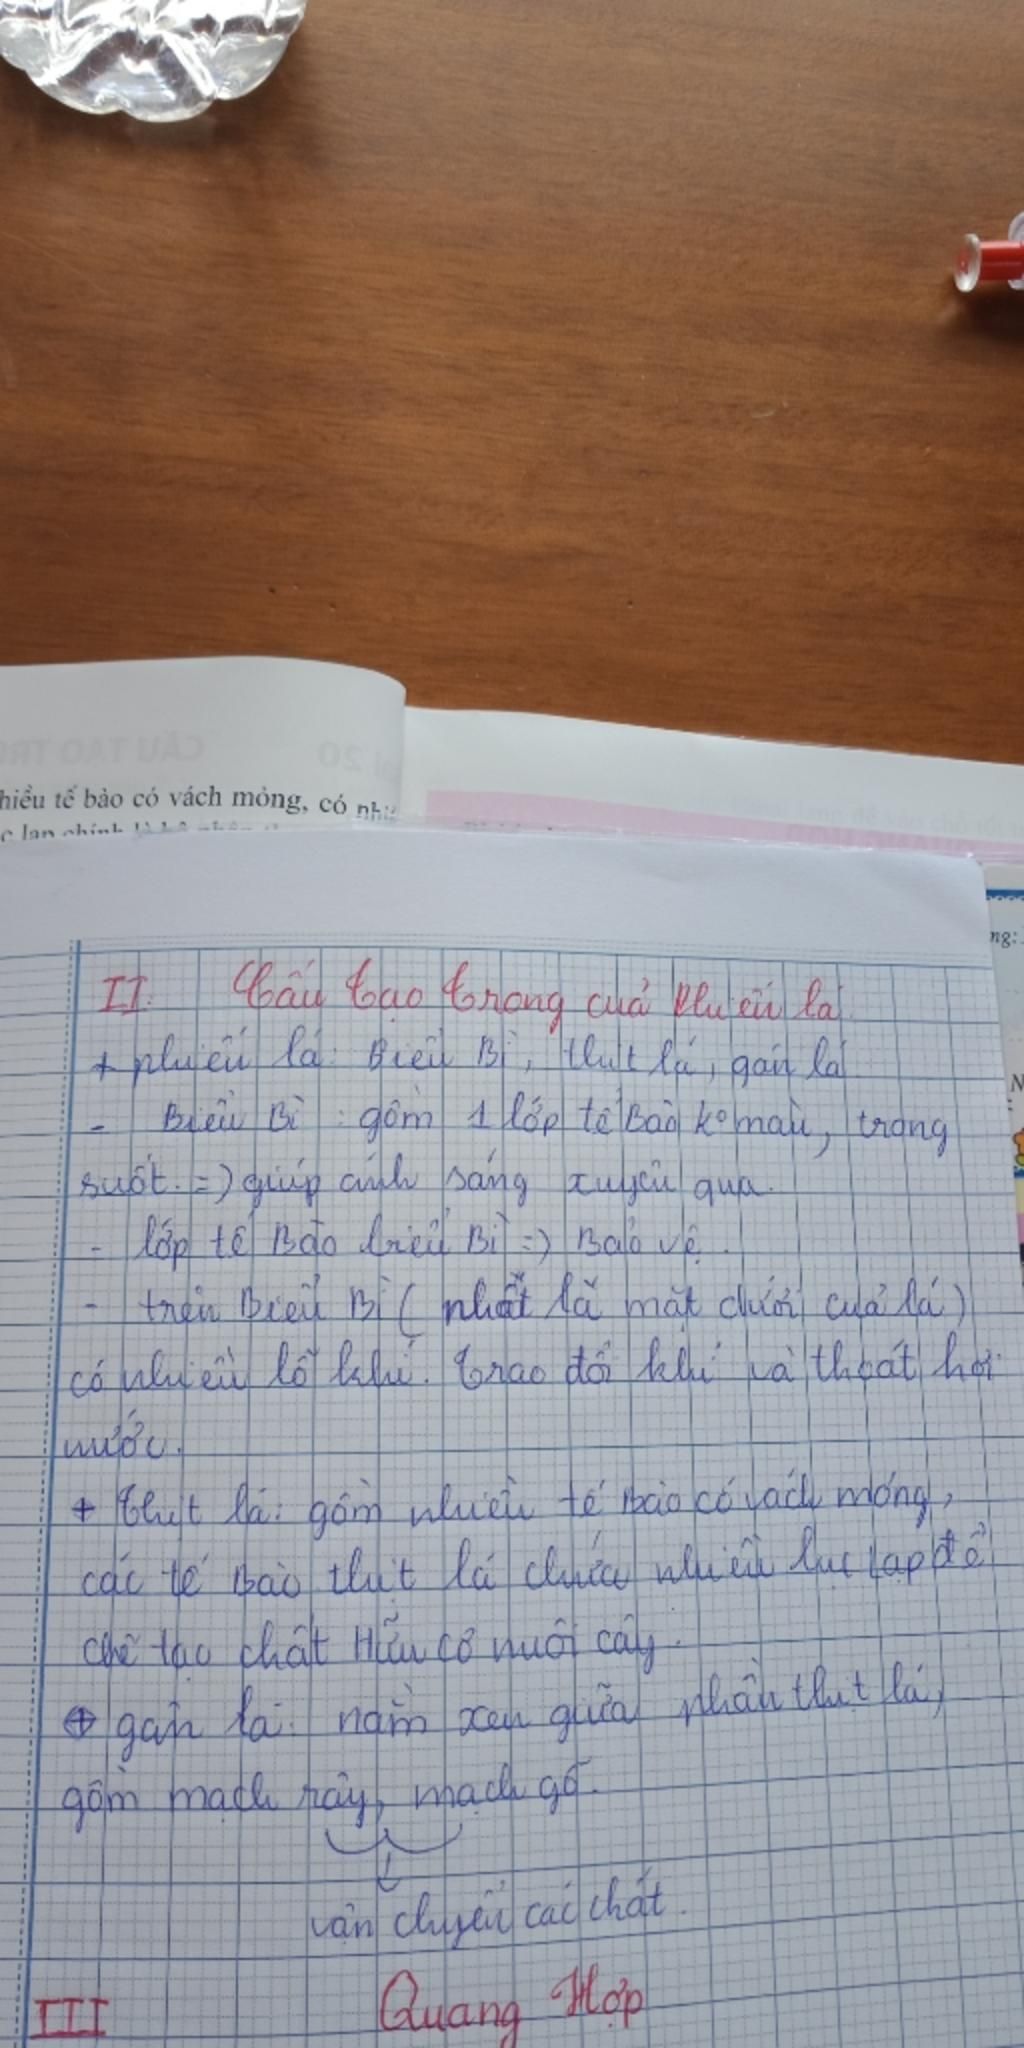 hiều tế bào có vách mỏng, có
II. Cấu tạo trong của phiến lá
+ phiến lá: Biểu Bì, thịt lá, gân lá
- Biểu Bì: gồm 1 lớp tế Bào kº màu, trong
suốt. =) giúp ánh sáng xuyên qua.
- lớp tế Bào biểu Bì =) Bảo vệ.
- trên Biểu Bì ( nhất là mặt dưới của lá)
có nhiều lỗ khí. trao đổi khí và thoát hơi
nước.
+ thịt lá: gồm nhiều tế Bào có vách mỏng,
các tế Bào thịt lá chứa nhiều lục lạp để
chế tạo chất Hữu cơ nuôi cây.
+ gân lá: nằm xen giữa phần thịt lá,
gồm mạch rây, mạch gỗ.
vận chuyển các chất.
III Quang Hợp